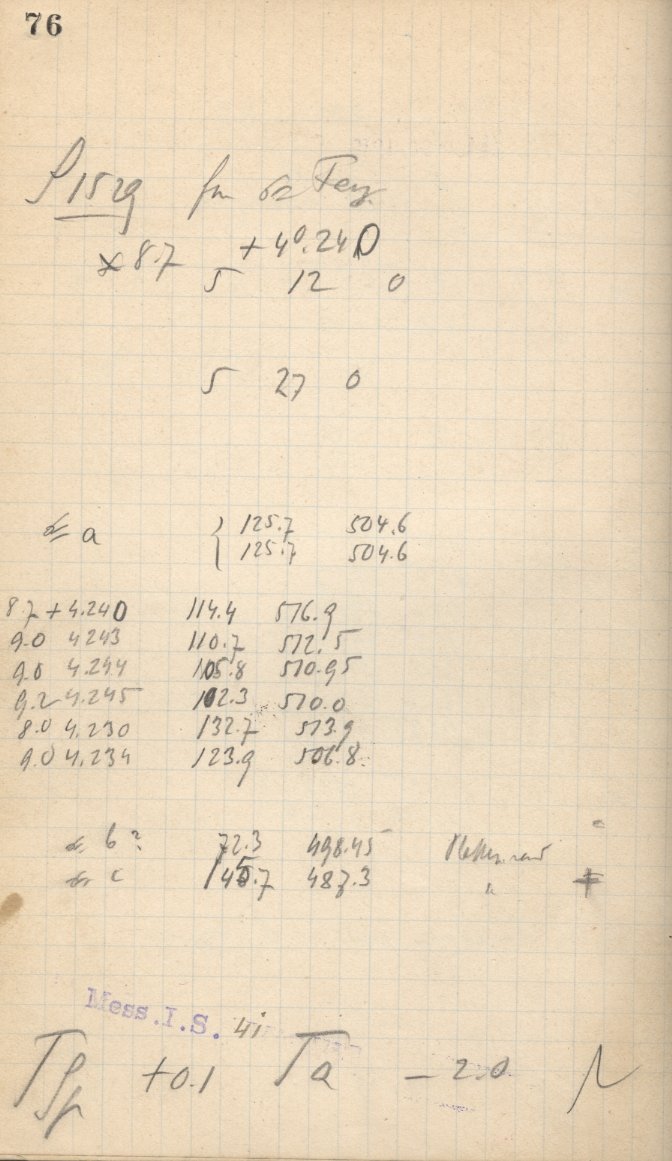 76
P 1529
* 8.7 +4°.240
5 12 0
5 27 0
a { 125.7 504.6
125.7 504.6
8.7 +4.240 114.4 516.9
9.0 4243 110.7 512.5
9.0 4.244 105.8 510.95
9.2 4.245 102.3 510.0
8.0 4.230 132.7 513.9
9.0 4.234 123.9 506.8
b ? 72.3 498.45
c 145.7 487.3 "
Mess.I.S. 4i
T +0.1 Ta – 2.0